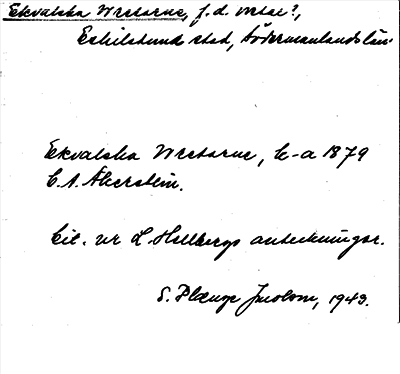 Ekvalska Wretarne, f.d. vretar?,
Eskilstuna stad, Södermanlands län
Ekvalska Wretarne, k-a 1879
C. A. Åkerstein.
Cit. ur L. Hellbergs anteckningar.
S. Plænge Jacobson, 1949.